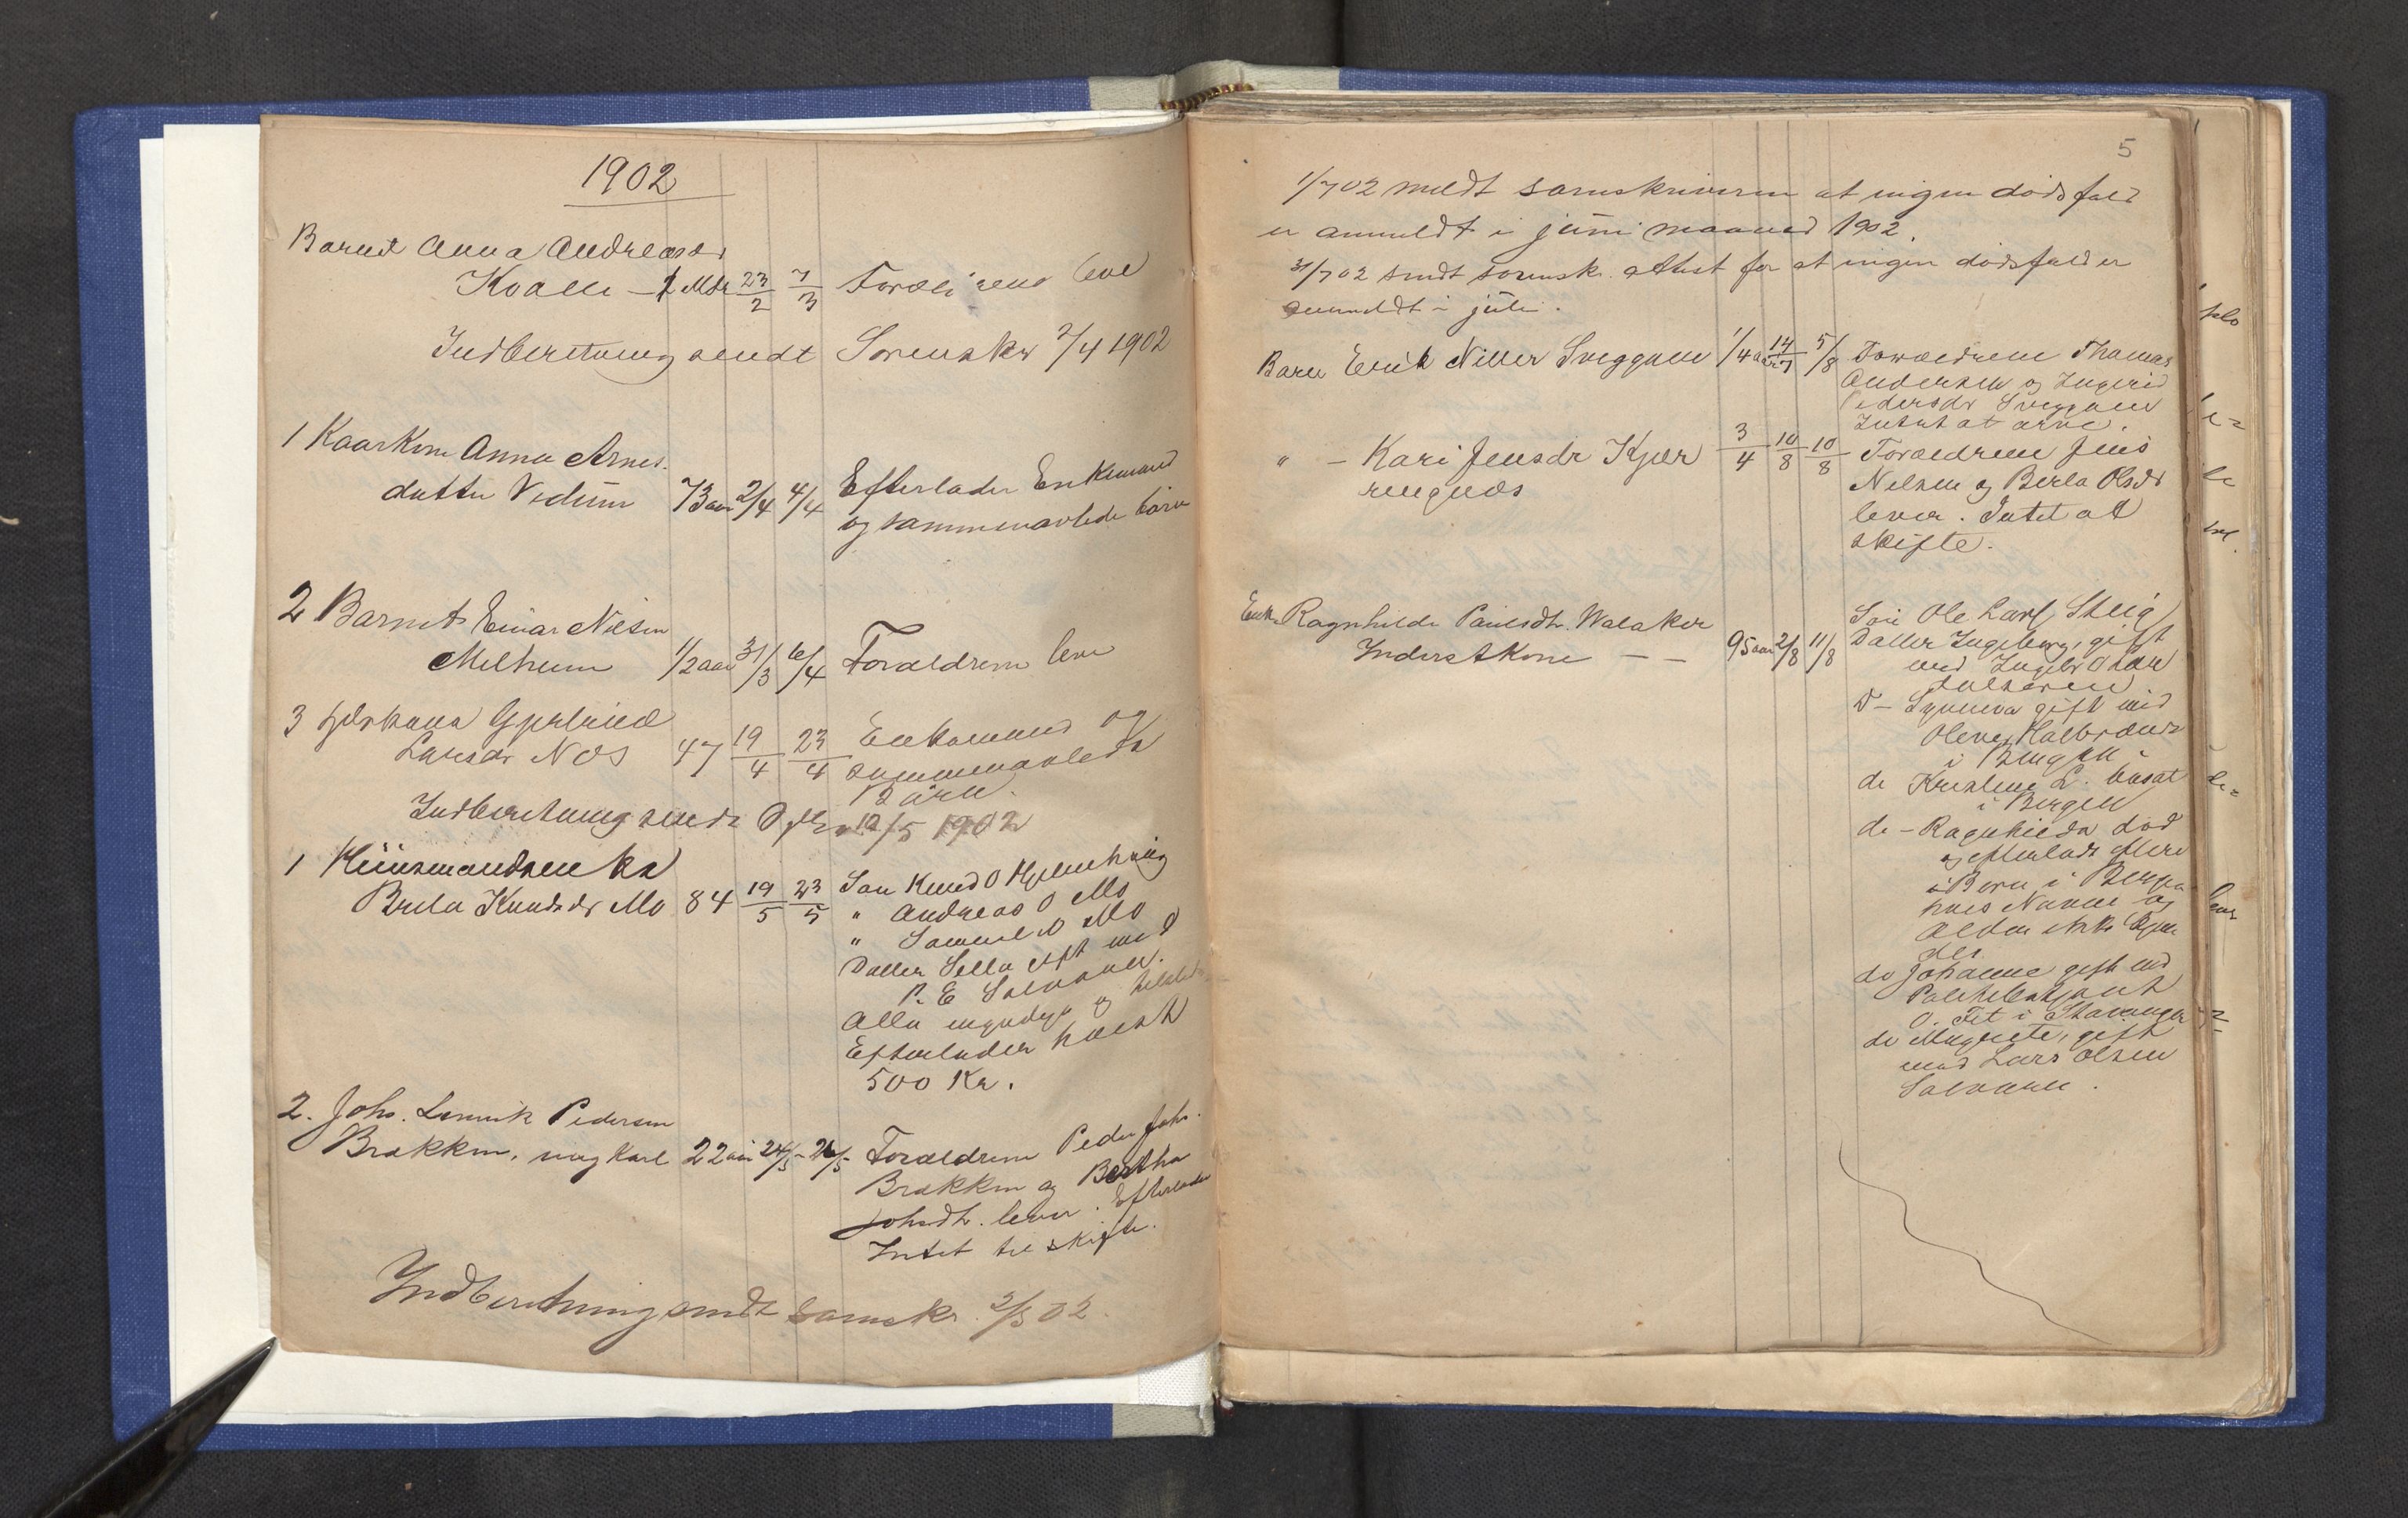 1902
Barnet Anna Andreasdr
Kvalle - 1 Mdr 23/2 7/3 Forældrene leve
Indberetning sendt Sorenskr 2/4 1902
1 Kaarkone Anna Arnes-
datter Vedum 73 aar 2/4 4/4 Efterlader Enkemand
og sammenavlede børn
2 Barnet Einar Nilsen
Melheim 1/2 aar 31/3 6/4 Forældrene leve
3 Gjertrud
Larsdr Næs 47 19/4 23/4 Enkemand og
sammenavlede
Børn.
Indberetning sendt 12/5 1902
1 Huusmandsenke
Brita Knudsdr Mo 84 19/5 23/5 Søn Knud O
" Andreas O Mo
" Samuel O Mo
Datter Sella gift med
P. E Solvorn.
Alle myndige og
Efterlader høist
500 Kr.
2. Johs. Henrik Pedersen
Brækken, ung Karl 22 aar 24/5 26/5 Forældrene Peder Johs.
Brækken og Bertha
Johsdtr. lever. Efterlader
Intet til skifte.
Indberetning sendt sorenskr. 2/5 02.
5
1/7 02 meldt sorenskriveren at ingen dødsfald
er anmeldt i juni maaned 1902.
31/7 02 sendt sorensk. attest for at ingen dødsfald er
anmeldt i juli.
Barn Erik Sveggum 1/4 aar 14/7 5/8 Forældrene Thomas
Andersen og Ingerid
Pedersdr Sveggum
Intet at arve.
" - Kari Jensdr Kjær 3/4 10/8 10/8 Forældrene Jens
ringnæs
Nilsen og Berta Olsdr
lever. Intet at
skifte.
Enke Ragnhilda Paulsdtr. Walaker
Inderstkone - - 95 aar 2/8 11/8
Søn Ole Larss. Steig
Datter Ingeborg, gift
med Ingebr
D - Synneva gift med
Oliver Halvorsen
i Bergen
do Kristine L. bosat
i Bergen
do - Ragnhilda død
og efterladt flere
Børn i Bergen
hvis Navne og
Alder ikke kjen
des
do Johanne gift med
Politibetjent
O. Fet i Stavanger
do Magrete, gift
med Lars Olsen
Solvorn.